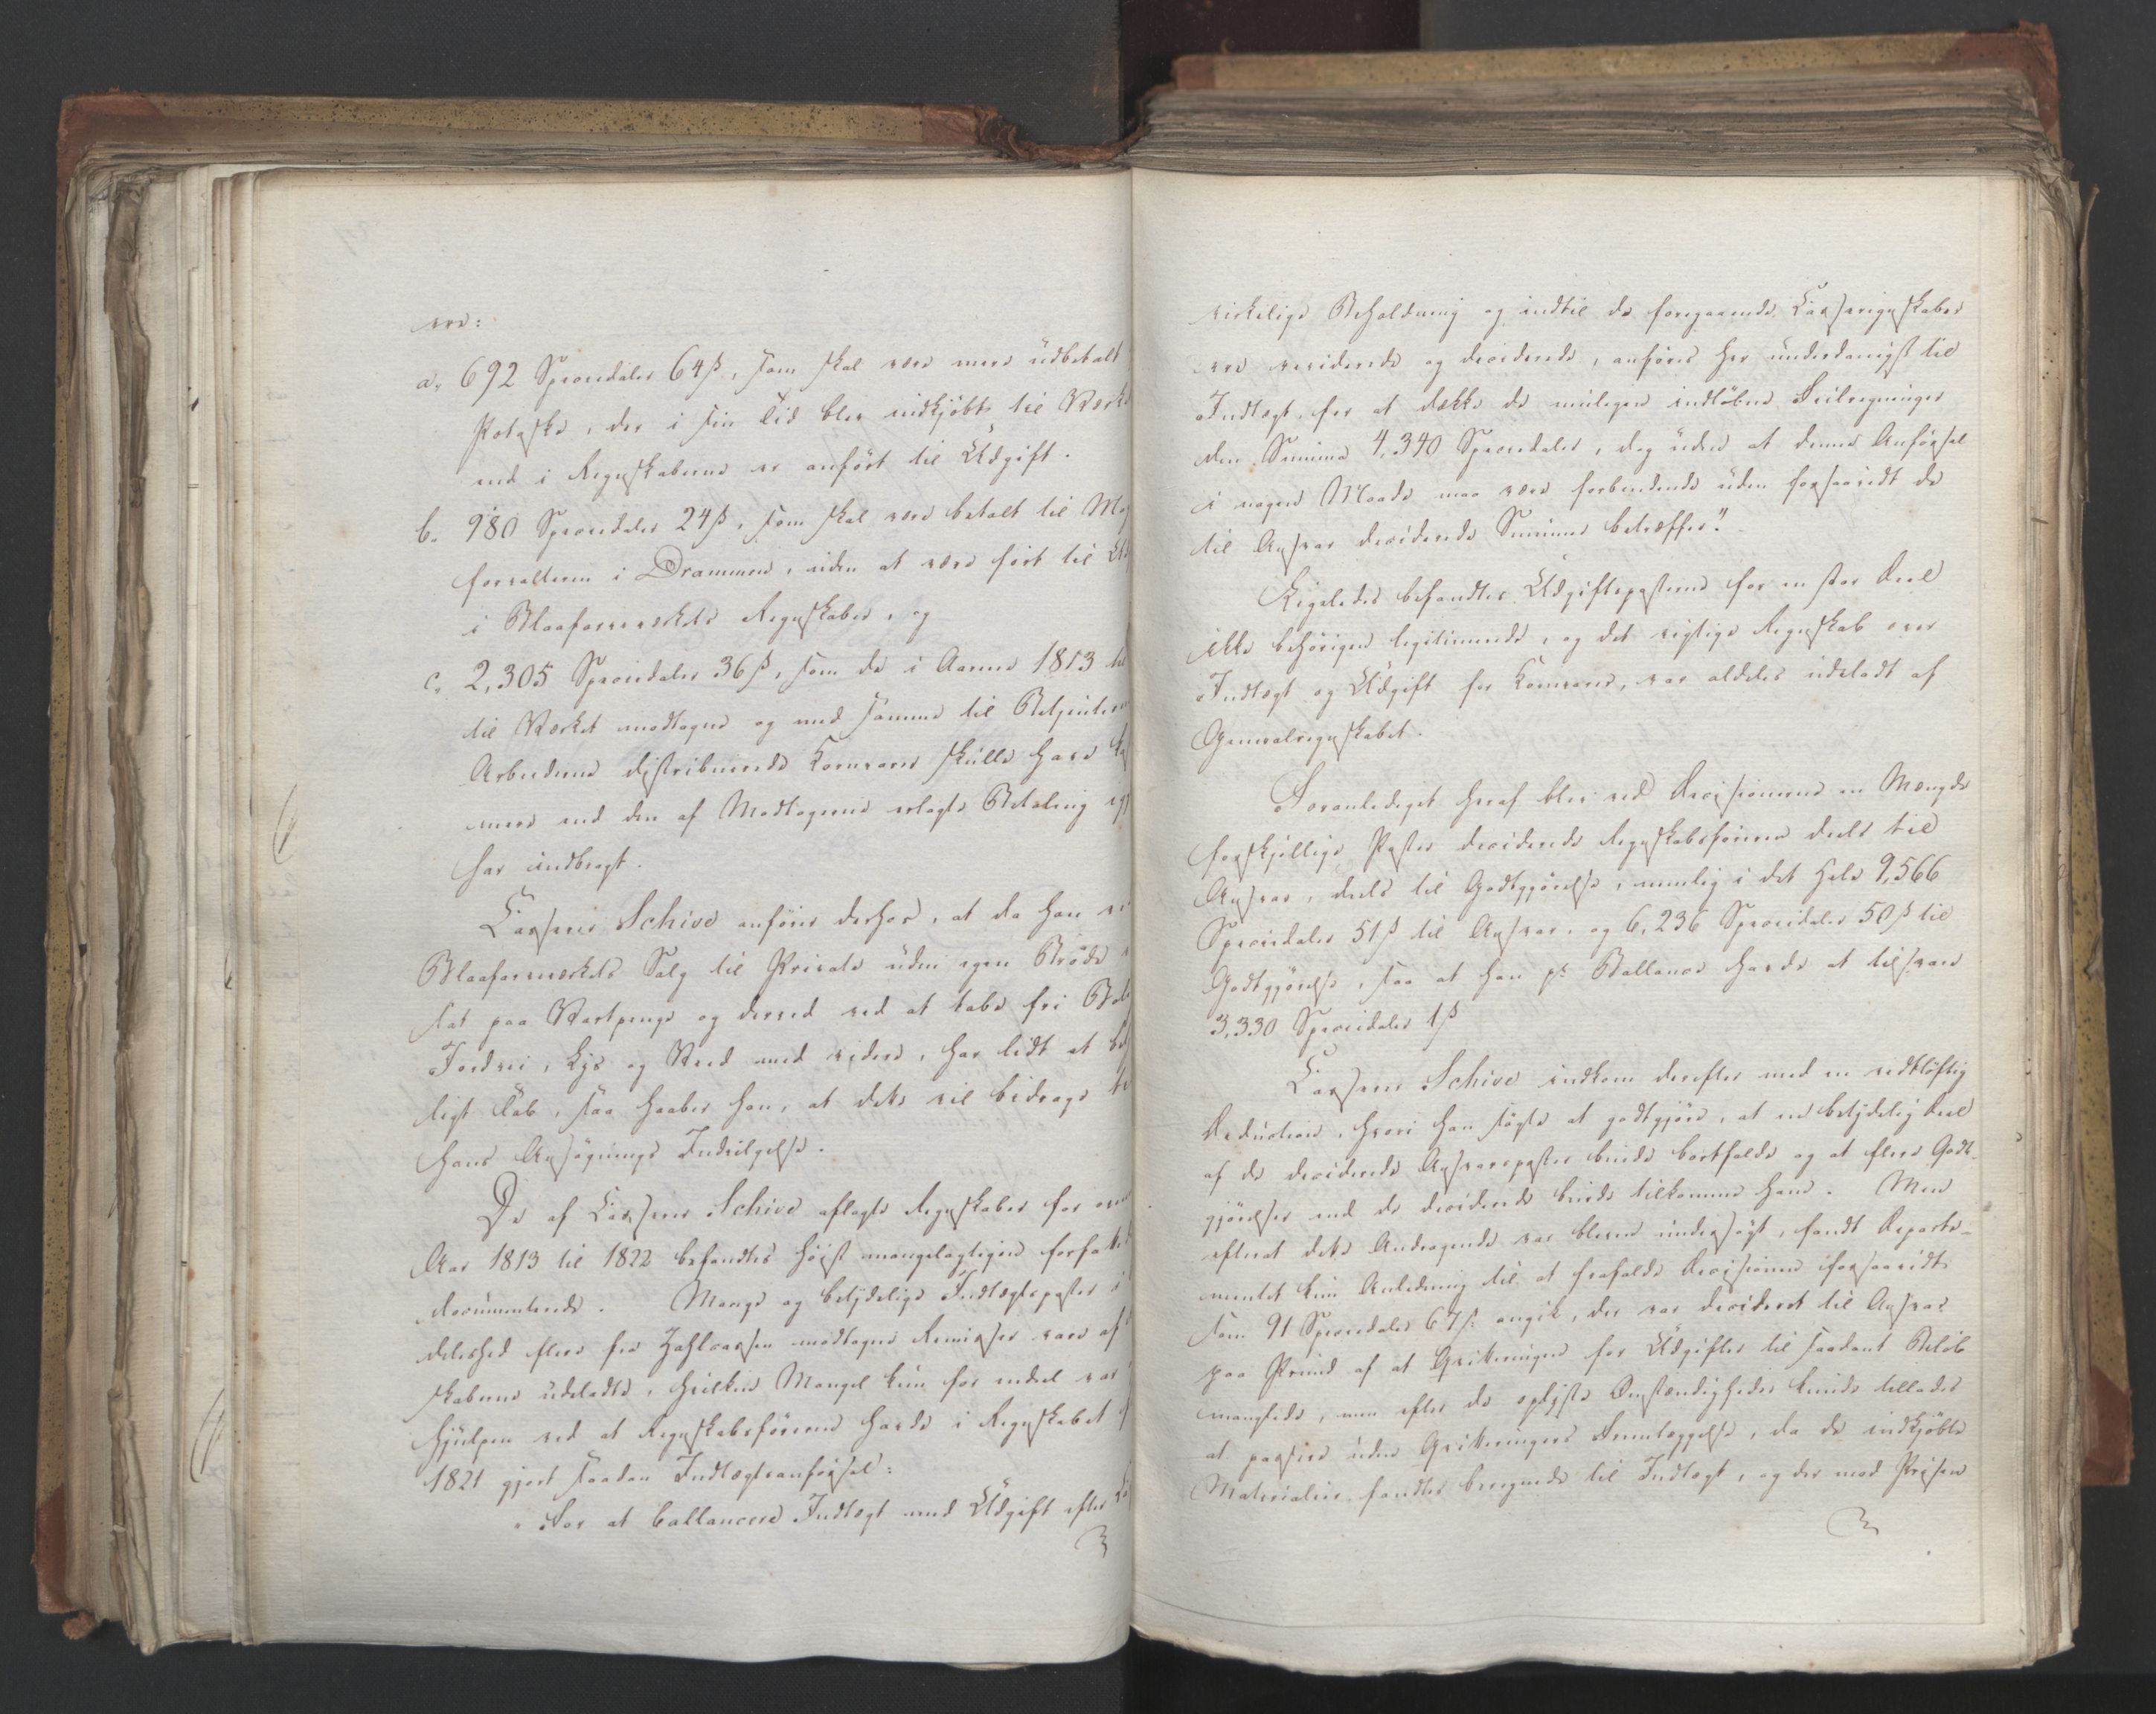 ere:
a, 692 Speciedaler 64 ß, som skal være mere udbetalt
Potaske, der i sin Tid blev indkjöbt til Værk
end i Regnskaberne er anfört til Udgift.
b. 980 Speciedaler 24 ß, som skal være betalt til Ma
forvalteren i Drammen, uden at være fört til Ud
i Blaafarveværkets Regnskaber, og
c, 2,305 Speciedaler 36 ß, som de i Aarene 1813 til
til Værket modtagne og med samme til Betjentere
Arbeiderne distribuerede Kornvarer skulle have ko
mere end den af Modtagerne erlagte Betaling
har indbragt.
Casserer Schive anförer derhos, at da han
Blaafarveværkets Salg til Private uden egen Bröde
sat paa Vartpenge og derved ved at tabe fri Bo
Jordvei, Lys og Veed med videre, har lidt et be
ligt Tab, saa haaber han, at dette vil bidrage til
hans Ansögnings Indvilgelse.
De af Casserer Schive aflagte Regnskaber for
Aar 1813 til 1822 befandtes höist mangelagtigen forfatte
documenterede. Mange og betydelige Indtægtsposter i
deleshed flere fra Zahlcassen modtagne Remisser vare af
skaberne udeladte, hvilken Mangel kun for endeel var
hjulpen ved at Regnskabsföreren havde i Regnskabet
1821 gjort saadan Indtægtsanförsel:
"For at ballancere Indtægt med Udgift efter
virkelige Beholdning og indtil de foregaaende Casseregnskaber
ere reviderede og deciderede, anföres her underdanigst til
Indtægt, for at dække de muligen indlöbne Feilregninger
den Summa 4,340 Speciedaler, dog uden at denne Anförsel
i nogen Maade maa være forbindende uden forsaavidt de
til Ansvar deciderede Summer betræffer."
Ligeledes befandtes Udgiftsposterne for en stor Deel
ikke behörigen legitimerede, og det rigtige Regnskab over
Indtægt og Udgift for Kornvarer, var aldeles udeladt af
Generalregnskabet.
Foranlediget heraf blev ved Decisionerne en Mængde
forskjellige Poster deciderede Regnskabsföreren deels til
Ansvar, deels til Godtgjörelse, nemlig i det Hele 9,566
Speciedaler 51 ß til Ansvar, og 6,236 Speciedaler 50 ß til
Godtgjörelse, saa at han pr Ballance havde at tilsvare
3,330 Speciedaler 1 ß
Casserer Schive indkom derefter med en vidtlöftig
Deduction, hvori han sögte at godtgjöre, at en betydelig Deel
af de deciderede Ansvarsposter burde bortfalde og at flere Godt-
gjörelser end de deciderede burde tilkomme ham. Men
efterat dette Andragende var bleven undersögt, fandt Departe-
mentet kun Anledning til at frafalde Decisionen forsaavidt
som 91 Speciedaler 67 ß angik, der var decideret til Ansvar
paa Grund af at Qvitteringen for Udgifter til saadant Belöb
manglede, men efter de oplyste Omstændigheder kunde tillades
at passere uden Qvitteringers Fremlæggelse, da de indkjöbte
Materialier fandtes beregnede til Indtægt, og der mod Prisen